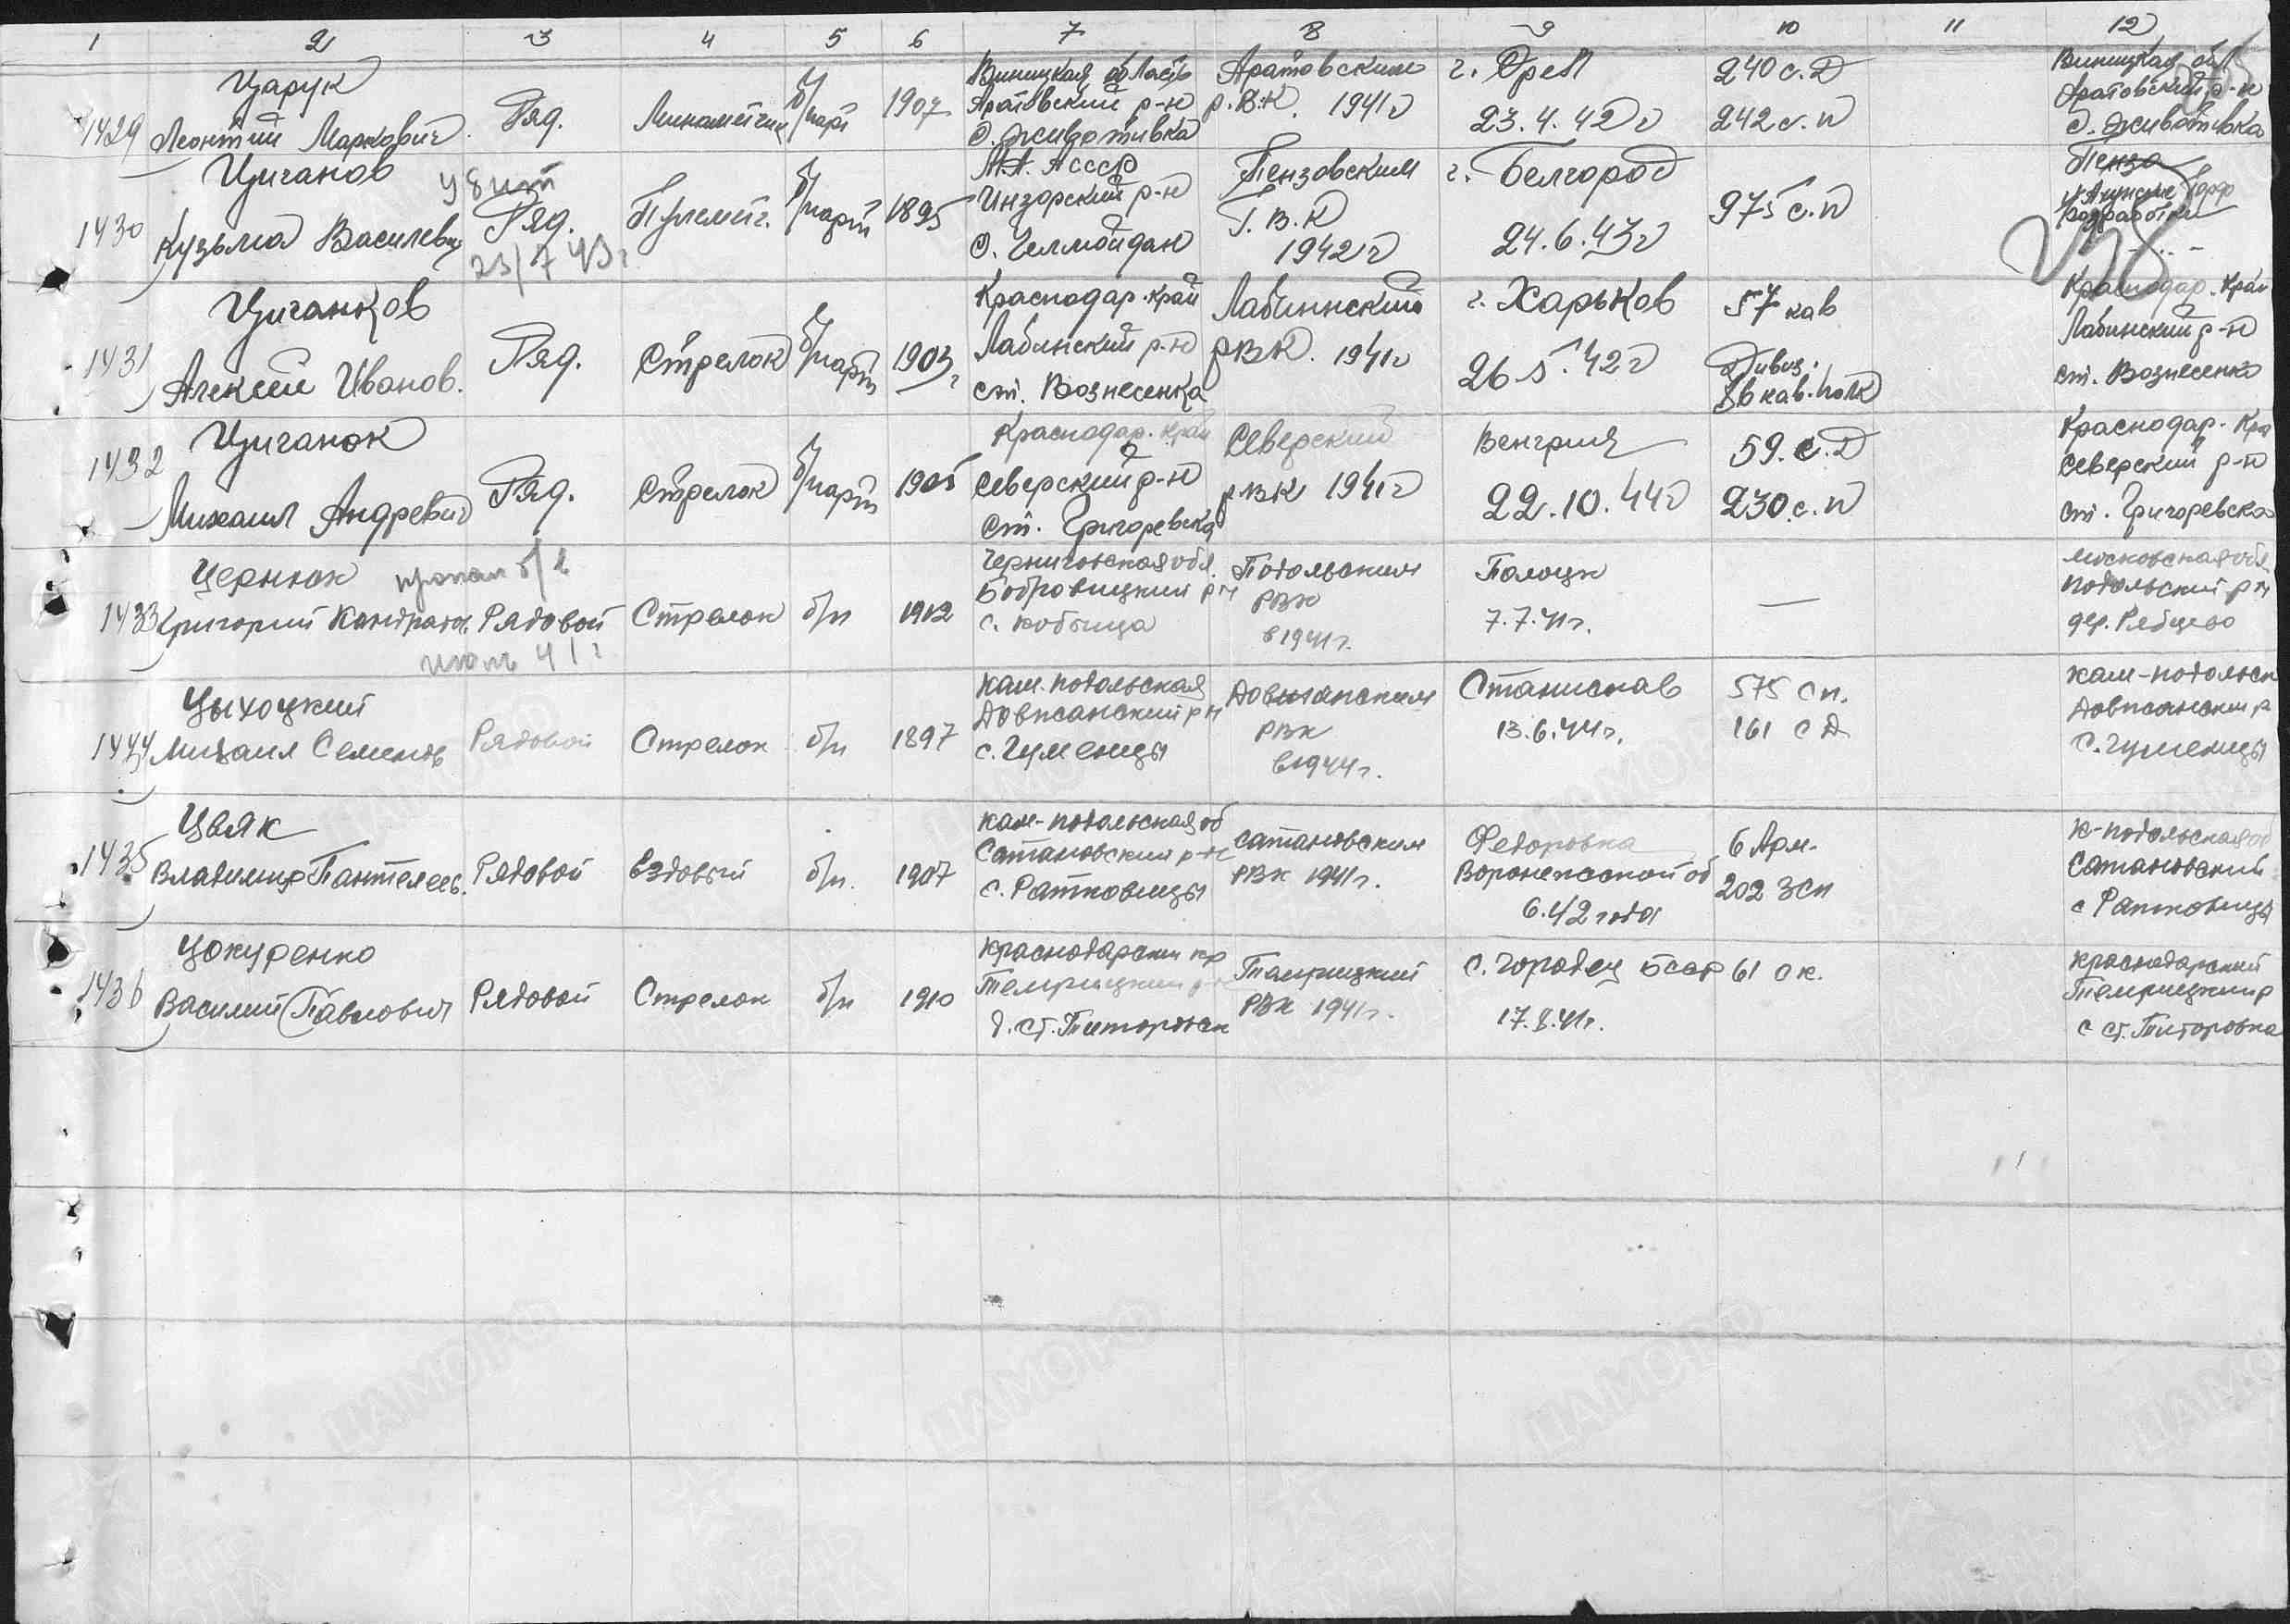 1 2 3 4 5 6 7 8 9 10 11 12
1429
Царук
Леонтий Маркович
Ряд.
Минометчик
б/парт
1907
Виницкая область
Аратовский р-н
с. Животивка
Аратовским
р.В.К. 1941г
г. Орел
23.4.42г
240 с.Д
242 с.п
Виницкая обл
Аратовский р-н
с. Животивка
1430
Циганов
Кузьма Василевич
убит
Ряд.
23/7 43г
Пулемет.
б/парт
1895
М.А. Ассср
Инзорский р-н
с. Челмойдан
Пензовским
Г.В.К
1942г
г. Белгород
24.6.43г
975 с.п
Пенза
разработки
1431
Циганков
Алексей Иванов.
Ряд.
Стрелок
б/парт
1903г
Краснодар. край
Лабинский р-н
ст. Вознесенка
Лабинский
РВК. 1941г
г. Харьков
26.5.42г
57 кав
Дивиз.
86 кав. полк
Краснодар. край
Лабинский р-н
ст. Вознесенка
1432
Циганок
Михаил Андревич
Ряд.
Стрелок
б/парт
1905
Краснодар. край
Северский р-н
ст. Григоревска
Северский
рвк 1941г
Венгрия
22.10.44г
59. с.Д
230 с.п
Краснодар. Кра
Северский р-н
ст. Григоревска
1433
Цернюк
Григорий Кондратов.
пропал б/в
Рядовой
июль 41г
Стрелок
б/п
1912
Черниговская обл.
Бобровицкий р-н
с. Кобыща
Подольским
РВК
в 1941г.
Полоцк
7.7.41г.
—
Московская обл
Подольский р-н
дер. Рябцево
1444
Цыхоцкий
Михаил Семенов
Рядовой
Стрелок
б/п
1897
Кам. подольская
Довжанский р-н
с. Гуменцы
Довжанским
РВК
в 1944г.
Станислав
13.6.44г.
575 сп.
161 с д
Кам-подольск
Довжанский р
с. Гуменцы
1435
Цвяк
Владимир Пантелеев.
Рядовой
Ездовый
б/п.
1907
Кам-подольская об
Сатановский р-н
с. Ратковицы
Сатановским
РВК 1941г.
Федоровка
Воронежской об
6.42 года
6 Арм.
202 ЗСП
К-подольская об
Сатановский
с Ратковицы
1436
Цокуренко
Василий Павлович
Рядовой
Стрелок
б/п
1910
Краснодарский кр
Темрицкий р-н
ст. Титоровск
Темрицкий
РВК 1941г.
с. Городец БССР
17.8.41г.
61 с к.
Краснодарский
Темрицкий р
с ст. Титоровка